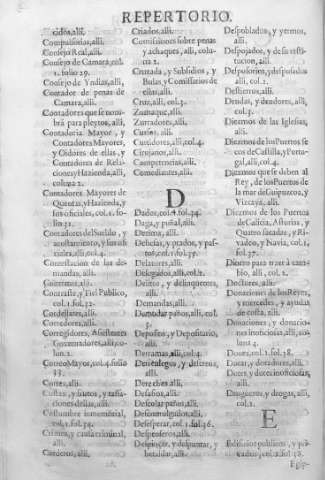 REPERTORIO.
cidos, alli.
Compulsorias, alli.
Consejo Real, alli.
Consejo de Camara, col.
1. folio 29.
Consejo de Yndias, alli.
Contador de penas de
Camara, alli.
Contadores que se nom-
bra para pleytos, alli.
Contaduria Mayor, y
Contadores Mayores,
y Oidores de ellas, y
Contadores de Rela-
ciones, y Hazienda, alli,
coluna 2.
Contadores Mayores de
Quentas, y Hazienda, y
sus oficiales, col. 1. fo-
lio 31.
Contadores del Sueldo, y
Contestacion de las de-
mandas, alli.
Contraste, y Fiel Publico,
col. 1. fol. 32.
Cordellates, alli.
Corredores, alli.
Corregidores, Assistentes
Governadores, alli, co-
lun. 2.
Correo Mayor, col. 4. folio
33.
Cortes, alli.
Costas, y
Costumbre immemorial,
col. 1. fol. 34.
Crimen, y causa criminal,
alli.
Criados, alli.
Comissiones sobre penas
y achaques, alli, colu-
na 2.
Cruzada, y Subsidios, y
Bulas, y Comissarios de
ellas, alli.
Cruz, alli, col. 3.
Zumaque, alli.
Zurradores, alli.
Cursos, alli.
Curtidores, alli, col. 4.
Cirujanos, alli.
Competencias, alli.
Comediantes, alli.
D
Dados, col. 4. fol. 34.
Daga, y puñal, alli.
Dezima, alli.
Delicias, y prados, y pas-
tos, col. 1. fol. 35.
Delatores, alli.
Delegados, alli, col. 2.
Delitos, y delinquentes,
alli.
Demandas, alli.
paños, alli, col.
3.
Deposito, y Depositario,
alli.
Derramas, alli, col. 4.
alli.
Derechos, alli.
Desafios, alli.
Descolar paños, alli.
Desesperar, col. 1. fol. 36.
Desposeros, alli.
Despoblados, y yermos,
alli.
Despojador, y de la resti-
tucion, alli.
Desposorios, y desposados
alli, col. 2.
Destierros, alli.
Deudas, y deudores, alli,
col. 3.
Diezmos de las Iglesias,
alli.
Diezmos de los Puertos se
cos de Castilla, y Portu-
gal, alli, col. 4.
Diezmos que se deben al
Rey, de los Puertos de
la mar de Guipuzcoa, y
Vizcaya, alli.
Diezmos de los Puertos
de Galicia, Asturias, y
Quatro sacadas, y Ri-
vadeo, y Navia, col. 1,
fol. 37.
Dinero para traer à cam-
bio, alli, col. 2.
Doctores, alli.
Donaciones de los Reyes,
y mercedes, y ayudas
de costa, alli.
Donaciones, y donacio-
nes inoficiosas, alli, co-
lun. 4.
Dotes, col. 1. fol. 38.
Dorar, y doradores, alli.
Dotes, y dotes inoficiosas,
alli.
Drogueros, y drogas, alli,
col. 2.
E
Edificios publicos, y pri-
vados, col. 2. fol. 38.
Egip-